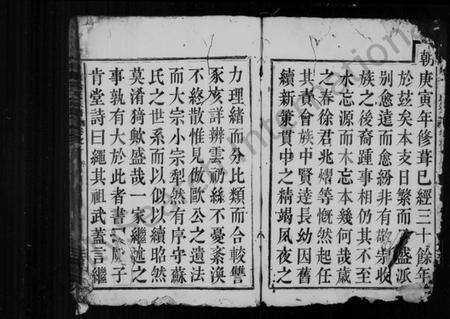 朝庚寅年修葺已經三十餘年
於茲矣本支日繁而
盛派
別愈遠而愈紛非有敬宗收
族之後裔踵事相仍其不至
水忘源而木忘本幾何哉歲
之春徐君兆
等慨然起任
其事會族中賢達長幼因舊
續新彙貫中之精竭夙夜之
力理緒而分比類而合較讐
豕亥詳辨雲礽絲不憂紊渙
不終散惟見倣歐公之遺法
而大宗小宗犁然有序守蘇
氏之世系而以似以續昭然
莫淆猗歟盛哉一家繼述之
事孰有大於此者書
子
肯堂詩曰繩其祖武蓋言繼